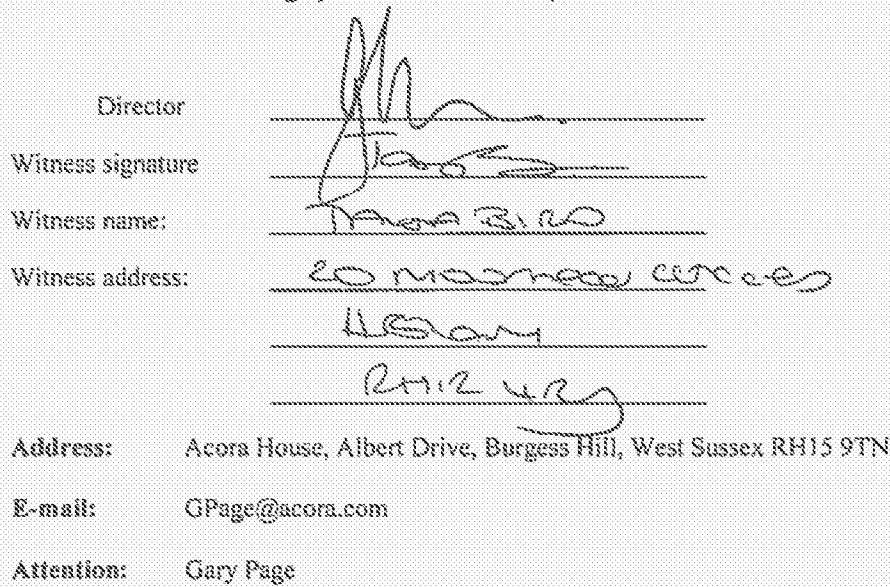 Director
Witness signature
Witness name: BIRD
Witness address: 20
RH12 4RJ
Address: Acora House, Albert Drive, Burgess Hill, West Sussex RH15 9TN
E-mail: GPage@acora.com
Attention: Gary Page